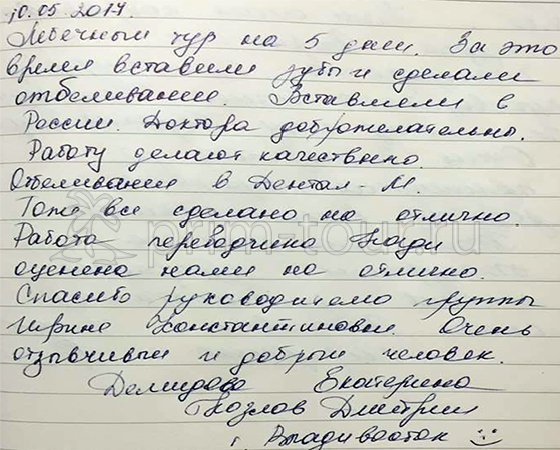 10.05.2017
Лечебный тур на 5 дней. За это
время вставили зубы и сделали
отбеливание. Вставляли в
России. Доктора доброжелательны.
Работу делают качественно.
Отбеливания в Дентал-М.
Тоже все сделано на отлично.
Работа переводчика Нади
оценена нами на отлично.
Спасибо руководителю группы
Ирине Константиновне. Очень
отзывчивый и добрый человек.
Демидова Екатерина
Козлов Дмитрий
г. Владивосток
prim-tour.ru